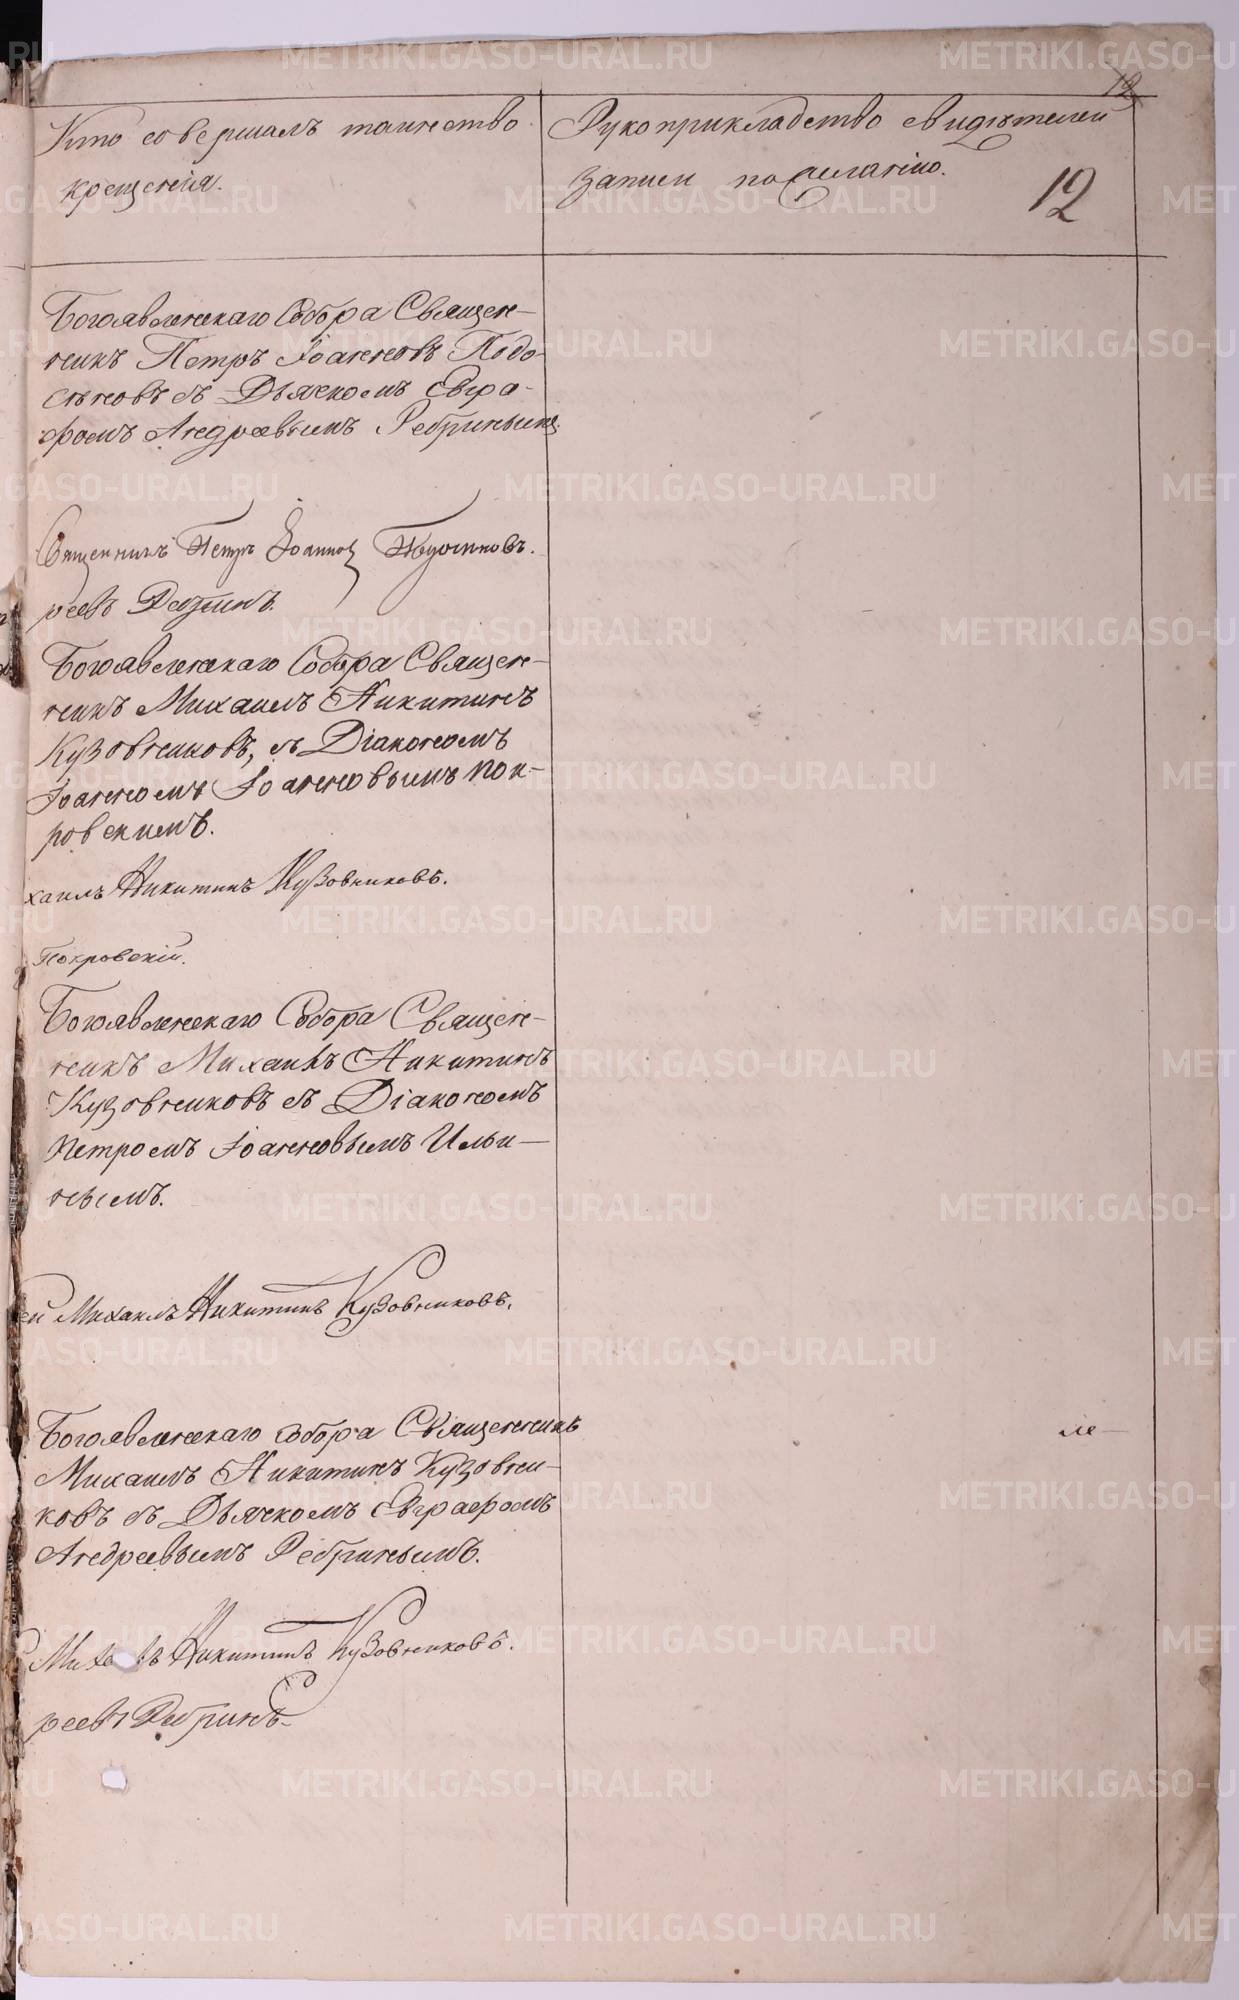 12
Кто совершалъ таинство
крещенія.
Рукоприкладство свидѣтелей
записи по желанію.
12
Богоявленскаго Собора Священ-
никъ Петръ Іоанновъ Подо-
сеновъ съ Дьячкомъ Евгра-
фомъ Андреевымъ Ребринымъ
Священникъ Петръ Іоанновъ
реевъ Ребринъ.
Богоявленскаго Собора Священ-
никъ Михаилъ Никитинъ
Кузовниковъ, съ Діакономъ
Іоанномъ Іоанновымъ Пок-
ровскимъ.
хаилъ Никитинъ Кузовниковъ.
Покровскій.
Богоявленскаго Собора Священ-
никъ Михаилъ Никитинъ
Кузовниковъ съ Діакономъ
Петромъ Іоанновымъ Ильи-
нымъ.
ей Михаилъ Никитинъ Кузовниковъ.
Богоявленскаго Собора Священникъ
Михаилъ Никитинъ Кузовни-
ковъ съ Дьячкомъ Евграфомъ
Андреевымъ Ребринымъ.
Михаилъ Никитинъ Кузовниковъ.
реевъ Ребринъ
METRIKI.GASO-URAL.RU